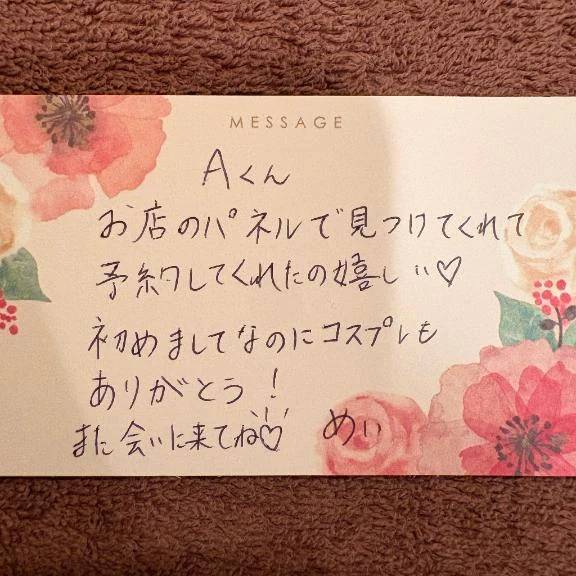 MESSAGE
Aくん
お店のパネルで見つけてくれて
予約してくれたの嬉しい♡
初めましてなのにコスプレも
ありがとう!
また会いに来てね♡ めい